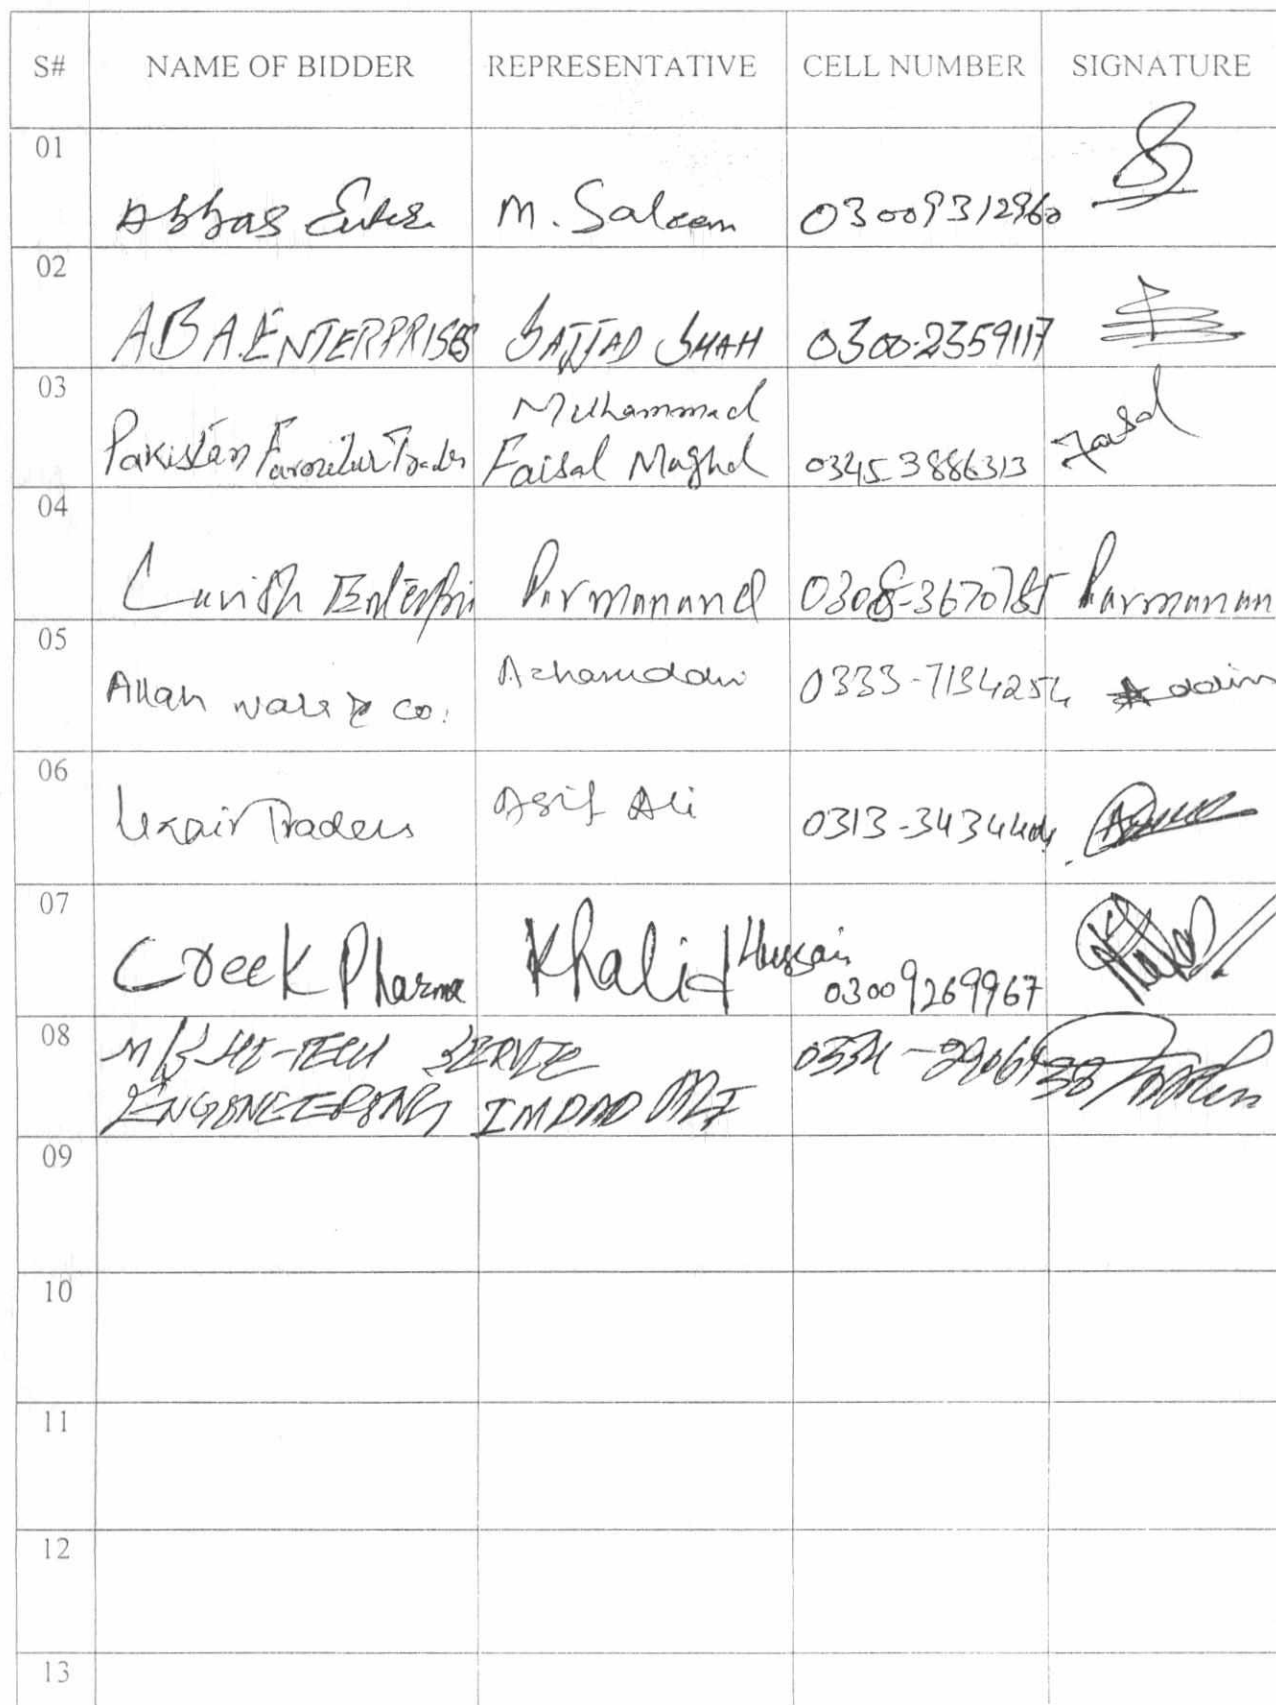 S# NAME OF BIDDER REPRESENTATIVE CELL NUMBER SIGNATURE
01
Abbas M. Saleem 03009312960
02
ABA. ENTERPRISES SAJJAD SHAH 0300-2359117
03
Muhammad
Pakistan Traders Faisal Mughal 0345 3886313 Faisal
04
Parmanand 0308-3670785 Parmanan
05
Allah wala & co. Azharuddin 0333-7134254
06
Uzair Traders Asif Ali 0313-3434404
07
Creek Pharma Khalid Hussain
03009269967
08
M/S HI-TECH SERVIC
ENGINEERING IMDAD ALI
09
10
11
12
13